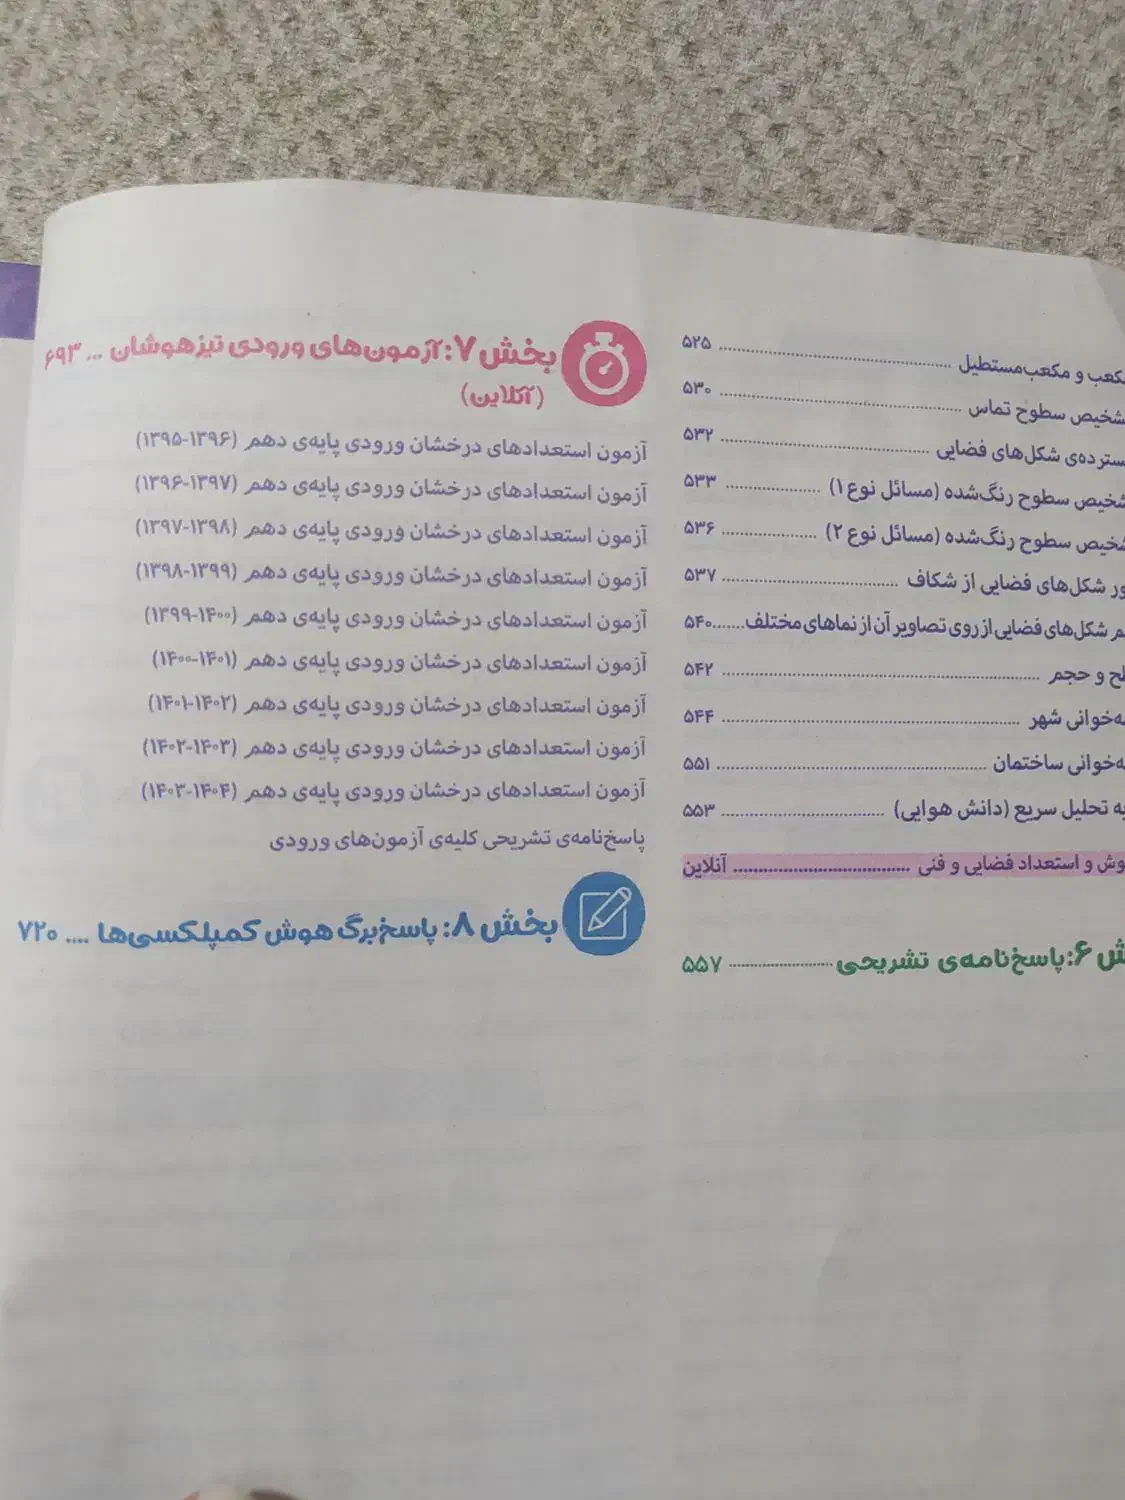 مکعب و مکعب‌مستطیل ........ ۵۲۵
تشخیص سطوح تماس ........ ۵۳۰
گسترده‌ی شکل‌های فضایی ........ ۵۳۲
تشخیص سطوح رنگ‌شده (مسائل نوع ۱) ........ ۵۳۳
تشخیص سطوح رنگ‌شده (مسائل نوع ۲) ........ ۵۳۶
شکل‌های فضایی از شکاف ........ ۵۳۷
شکل‌های فضایی از روی تصاویر آن از نماهای مختلف ....... ۵۴۰
و حجم ........ ۵۴۲
شهر ........ ۵۴۴
ساختمان ........ ۵۵۱
تحلیل سریع (دانش هوایی) ........ ۵۵۳
و استعداد فضایی و فنی ........ آنلاین
۶: پاسخ‌نامه‌ی تشریحی ........ ۵۵۷
بخش ۷: آزمون‌های ورودی تیزهوشان ... ۶۹۳
(آنلاین)
آزمون استعدادهای درخشان ورودی پایه‌ی دهم (۱۳۹۶-۱۳۹۵)
آزمون استعدادهای درخشان ورودی پایه‌ی دهم (۱۳۹۷-۱۳۹۶)
آزمون استعدادهای درخشان ورودی پایه‌ی دهم (۱۳۹۸-۱۳۹۷)
آزمون استعدادهای درخشان ورودی پایه‌ی دهم (۱۳۹۹-۱۳۹۸)
آزمون استعدادهای درخشان ورودی پایه‌ی دهم (۱۴۰۰-۱۳۹۹)
آزمون استعدادهای درخشان ورودی پایه‌ی دهم (۱۴۰۱-۱۴۰۰)
آزمون استعدادهای درخشان ورودی پایه‌ی دهم (۱۴۰۲-۱۴۰۱)
آزمون استعدادهای درخشان ورودی پایه‌ی دهم (۱۴۰۳-۱۴۰۲)
آزمون استعدادهای درخشان ورودی پایه‌ی دهم (۱۴۰۴-۱۴۰۳)
پاسخ‌نامه‌ی تشریحی کلیه‌ی آزمون‌های ورودی
بخش ۸: پاسخ‌برگ هوش کمپلکسی‌ها .... ۷۲۰